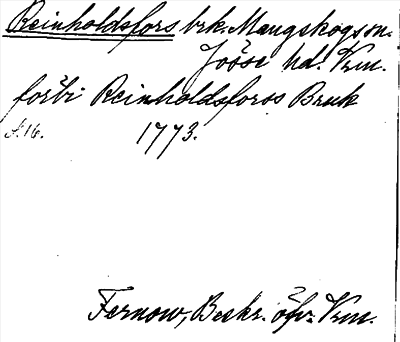 Reinholdsfors brk. Mangskogs sn.
Jösse hd. Vrm.
förbi Reinholdsforos Bruk
s. 16. 1773.
Fernow, Beskr. öfv. Vrm.